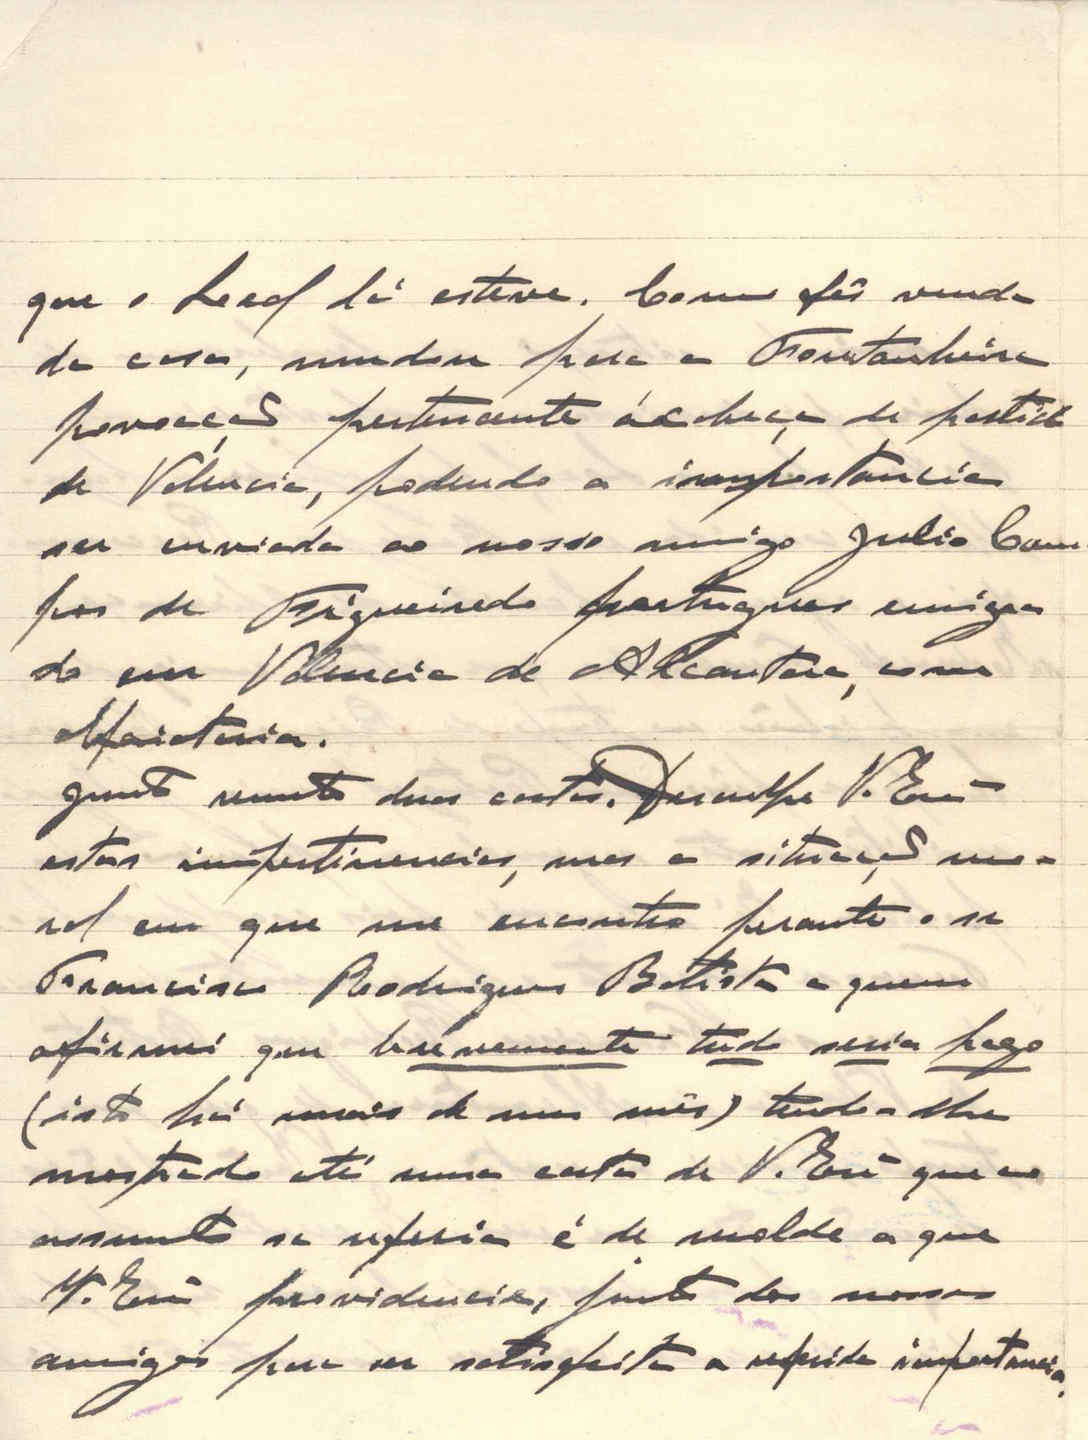 que o Leal lá esteve. Como fês venda
da casa, mudou para a Fontanheira
povoação pertencente á cabeça de partido
de Valencia, podendo a importancia
ser enviada ao nosso amigo Julio Cam-
pos de Figueiredo portugues emigra
do em Valencia de Alcantara, com
alfaiataria.
Junto remeto duas cartas. Desculpe V. Exª
estas impertinencias, mas a situação mo-
ral em que me encontro perante o sr
Francisco Rodrigues Batista a quem
afirmei que brevemente tudo seria pago
(isto há mais de um mês) tendo-lhe
mostrado até uma carta de V. Exª que ao
assunto se referia é de molde a que
V. Exª providencie, junto dos nossos
amigos para ser satisfeita a referida importancia.